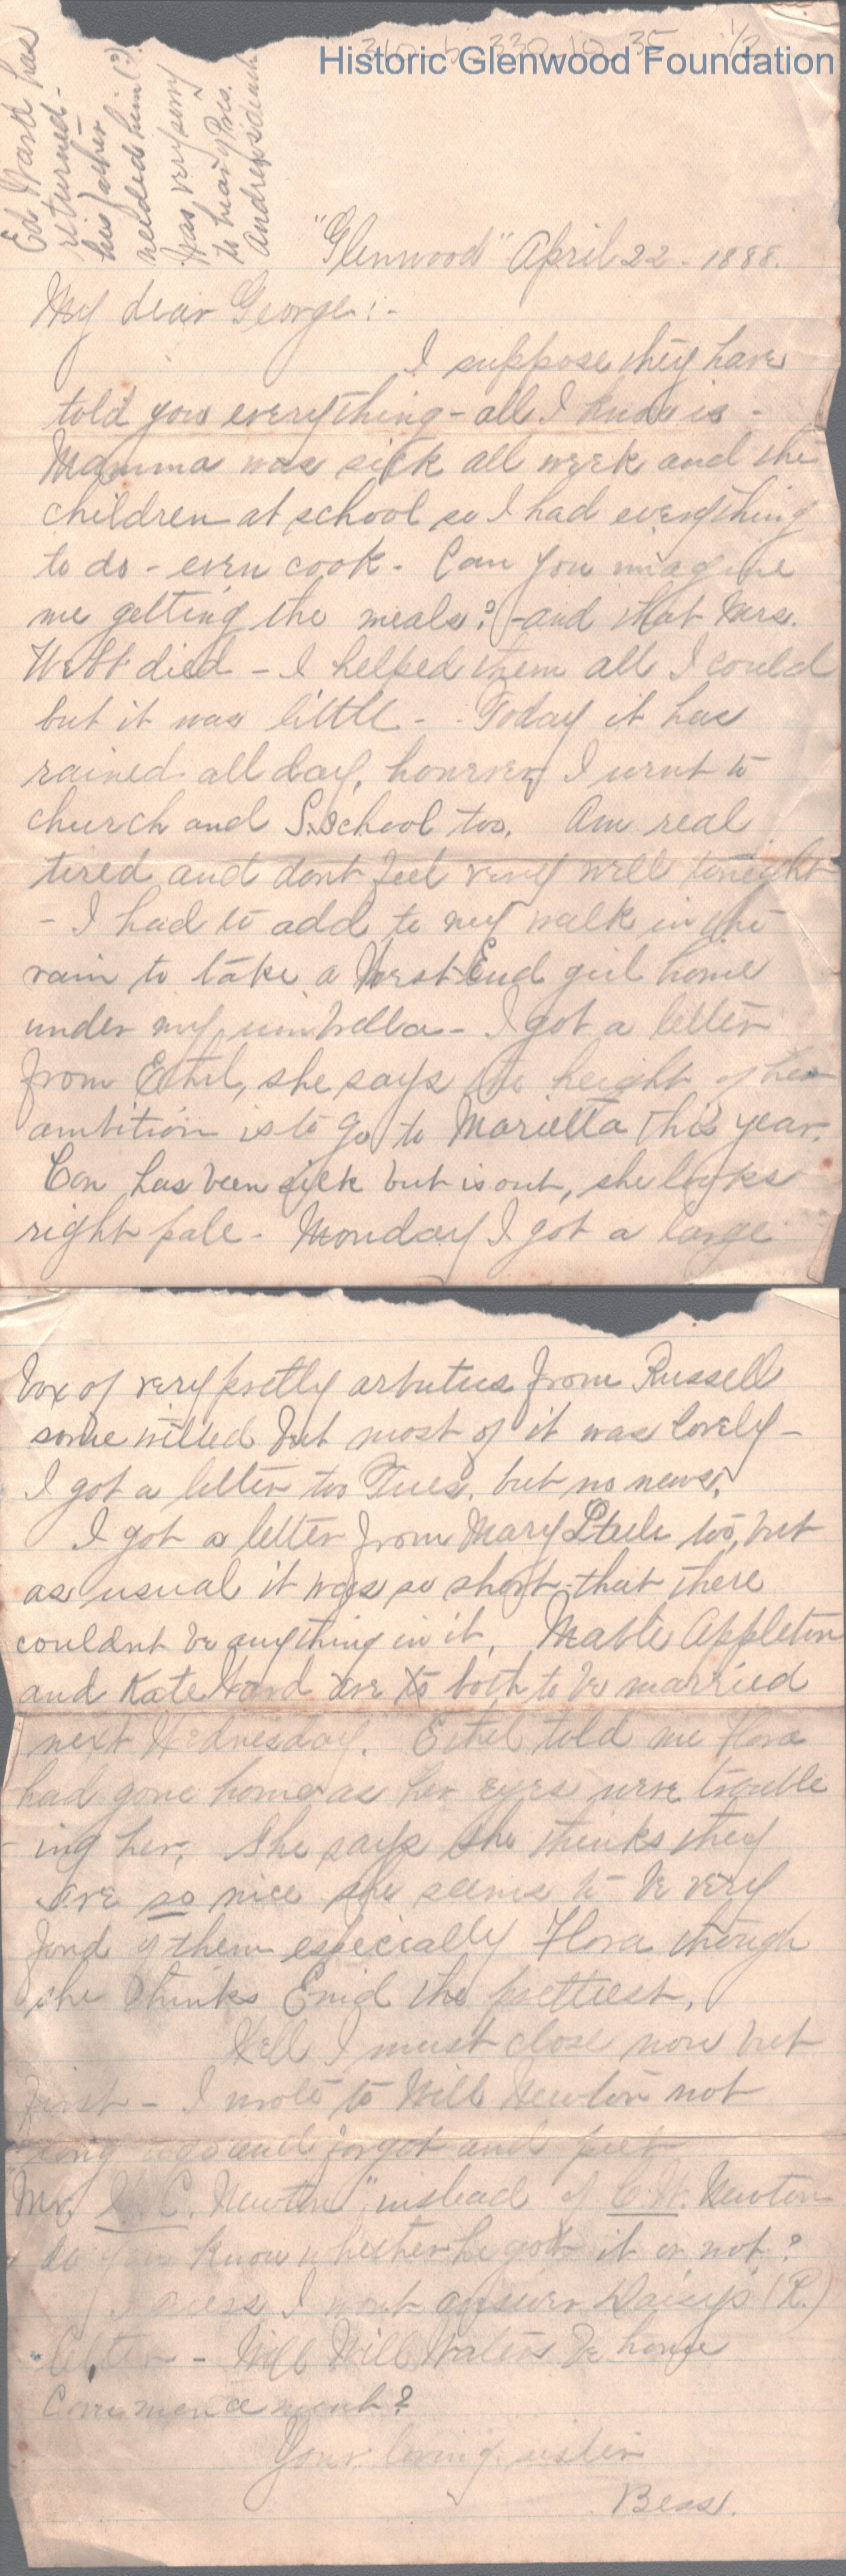 Historic Glenwood Foundation
310 b 330 10 35 1/2
Ed Ward has
returned -
his father
needed him (?)
Was very sorry
to hear of Pres.
Andrews death
"Glenwood" April 22 - 1888.
My dear George: -
I suppose they have
told you everything - all I know is -
Mamma was sick all week and the
children at school so I had everything
to do - even cook. Can you imagine
me getting the meals? - and that Mrs.
Webb died - I helped them all I could
but it was little - Today it has
rained all day, however I went to
church and S. School too. Am real
tired and dont feel very well tonight
- I had to add to my walk in the
rain to take a West End girl home
under my umbrella - I got a letter
from Ethel, she says the height of her
ambition is to go to Marietta this year.
Con has been sick but is out, she looks
right pale - Monday I got a large
box of very pretty arbutus from Russell
some wilted but most of it was lovely -
I got a letter too Tues. but no news.
I got a letter from Mary Steele too, but
as usual it was so short that there
couldnt be anything in it. Mable Appleton
and Kate Ward are to both to be married
next Wednesday. Ethel told me Flora
had gone home as her eyes were trouble
ing her. She says she thinks they
are so nice she seems to be very
fond of them especially Flora though
she thinks Enid the prettiest.
Well I must close now but
first - I wrote to Will Newton not
long ago and forgot and put
Mr. W. C. Newton" instead of C. W. Newton
do you know whether he got it or not?
I guess I wont answer Daisy's (R.)
letter - Will Will Waters be home
Commencement?
Your loving sister
Bess.